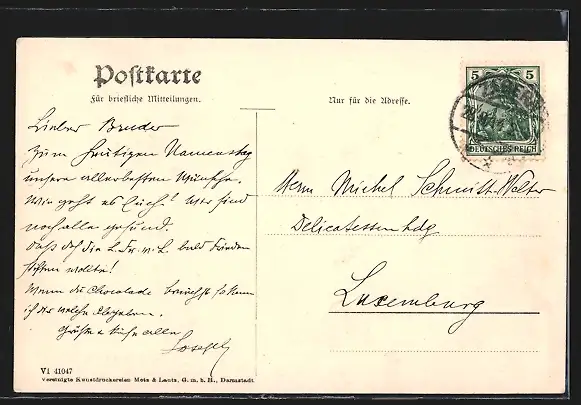 Postkarte
Für briefliche Mitteilungen.
Nur für die Adresse.
5 5
DEUTSCHES REICH
Lieber Bruder
Zum heutigen Namenstag
unsere allerbesten Wünsche.
Wie geht es Euch? Wir sind
noch alle gesund.
Daß doch die bald Frieden
stiften wollte!
Wenn du Chocolade brauchst so kann
ich dir welche
Grüße u Küsse alle
Joseph
Herrn Michel Schmitt-Welter
Delicatessenhdg
Luxemburg
VI 41047
Vereinigte Kunstdruckereien Metz & Lautz, G. m. b. H., Darmstadt.